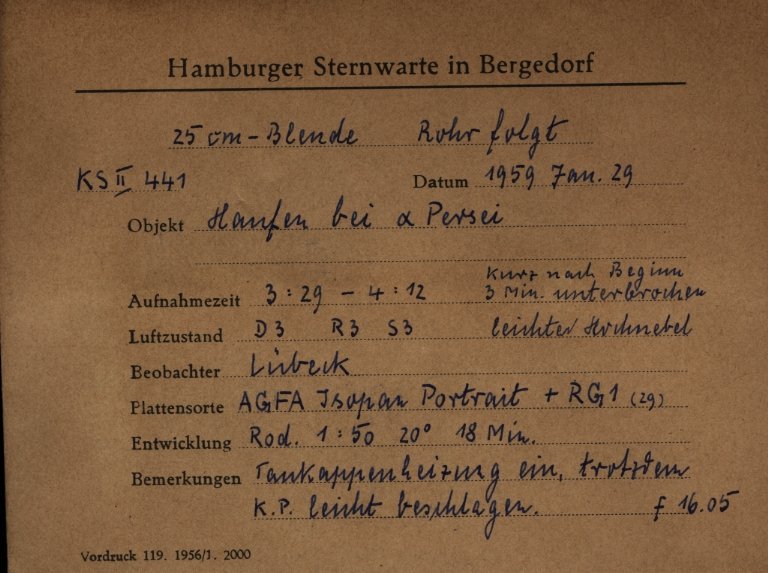 Hamburger Sternwarte in Bergedorf
25 cm-Blende Rohr folgt
KS II 441 Datum 1959 Jan. 29
Objekt Haufen bei α Persei
Kurz nach Beginn
Aufnahmezeit 3:29 - 4:12 3 Min. unterbrochen
Luftzustand D3 R3 S3 leichter Hochnebel
Beobachter Lübeck
Plattensorte AGFA Isopan Portrait + RG1 (29)
Entwicklung Rod. 1:50 20° 18 Min.
Bemerkungen Taukappenheizung ein, trotzdem
K.P. leicht beschlagen. f 16.05
Vordruck 119. 1956/1. 2000